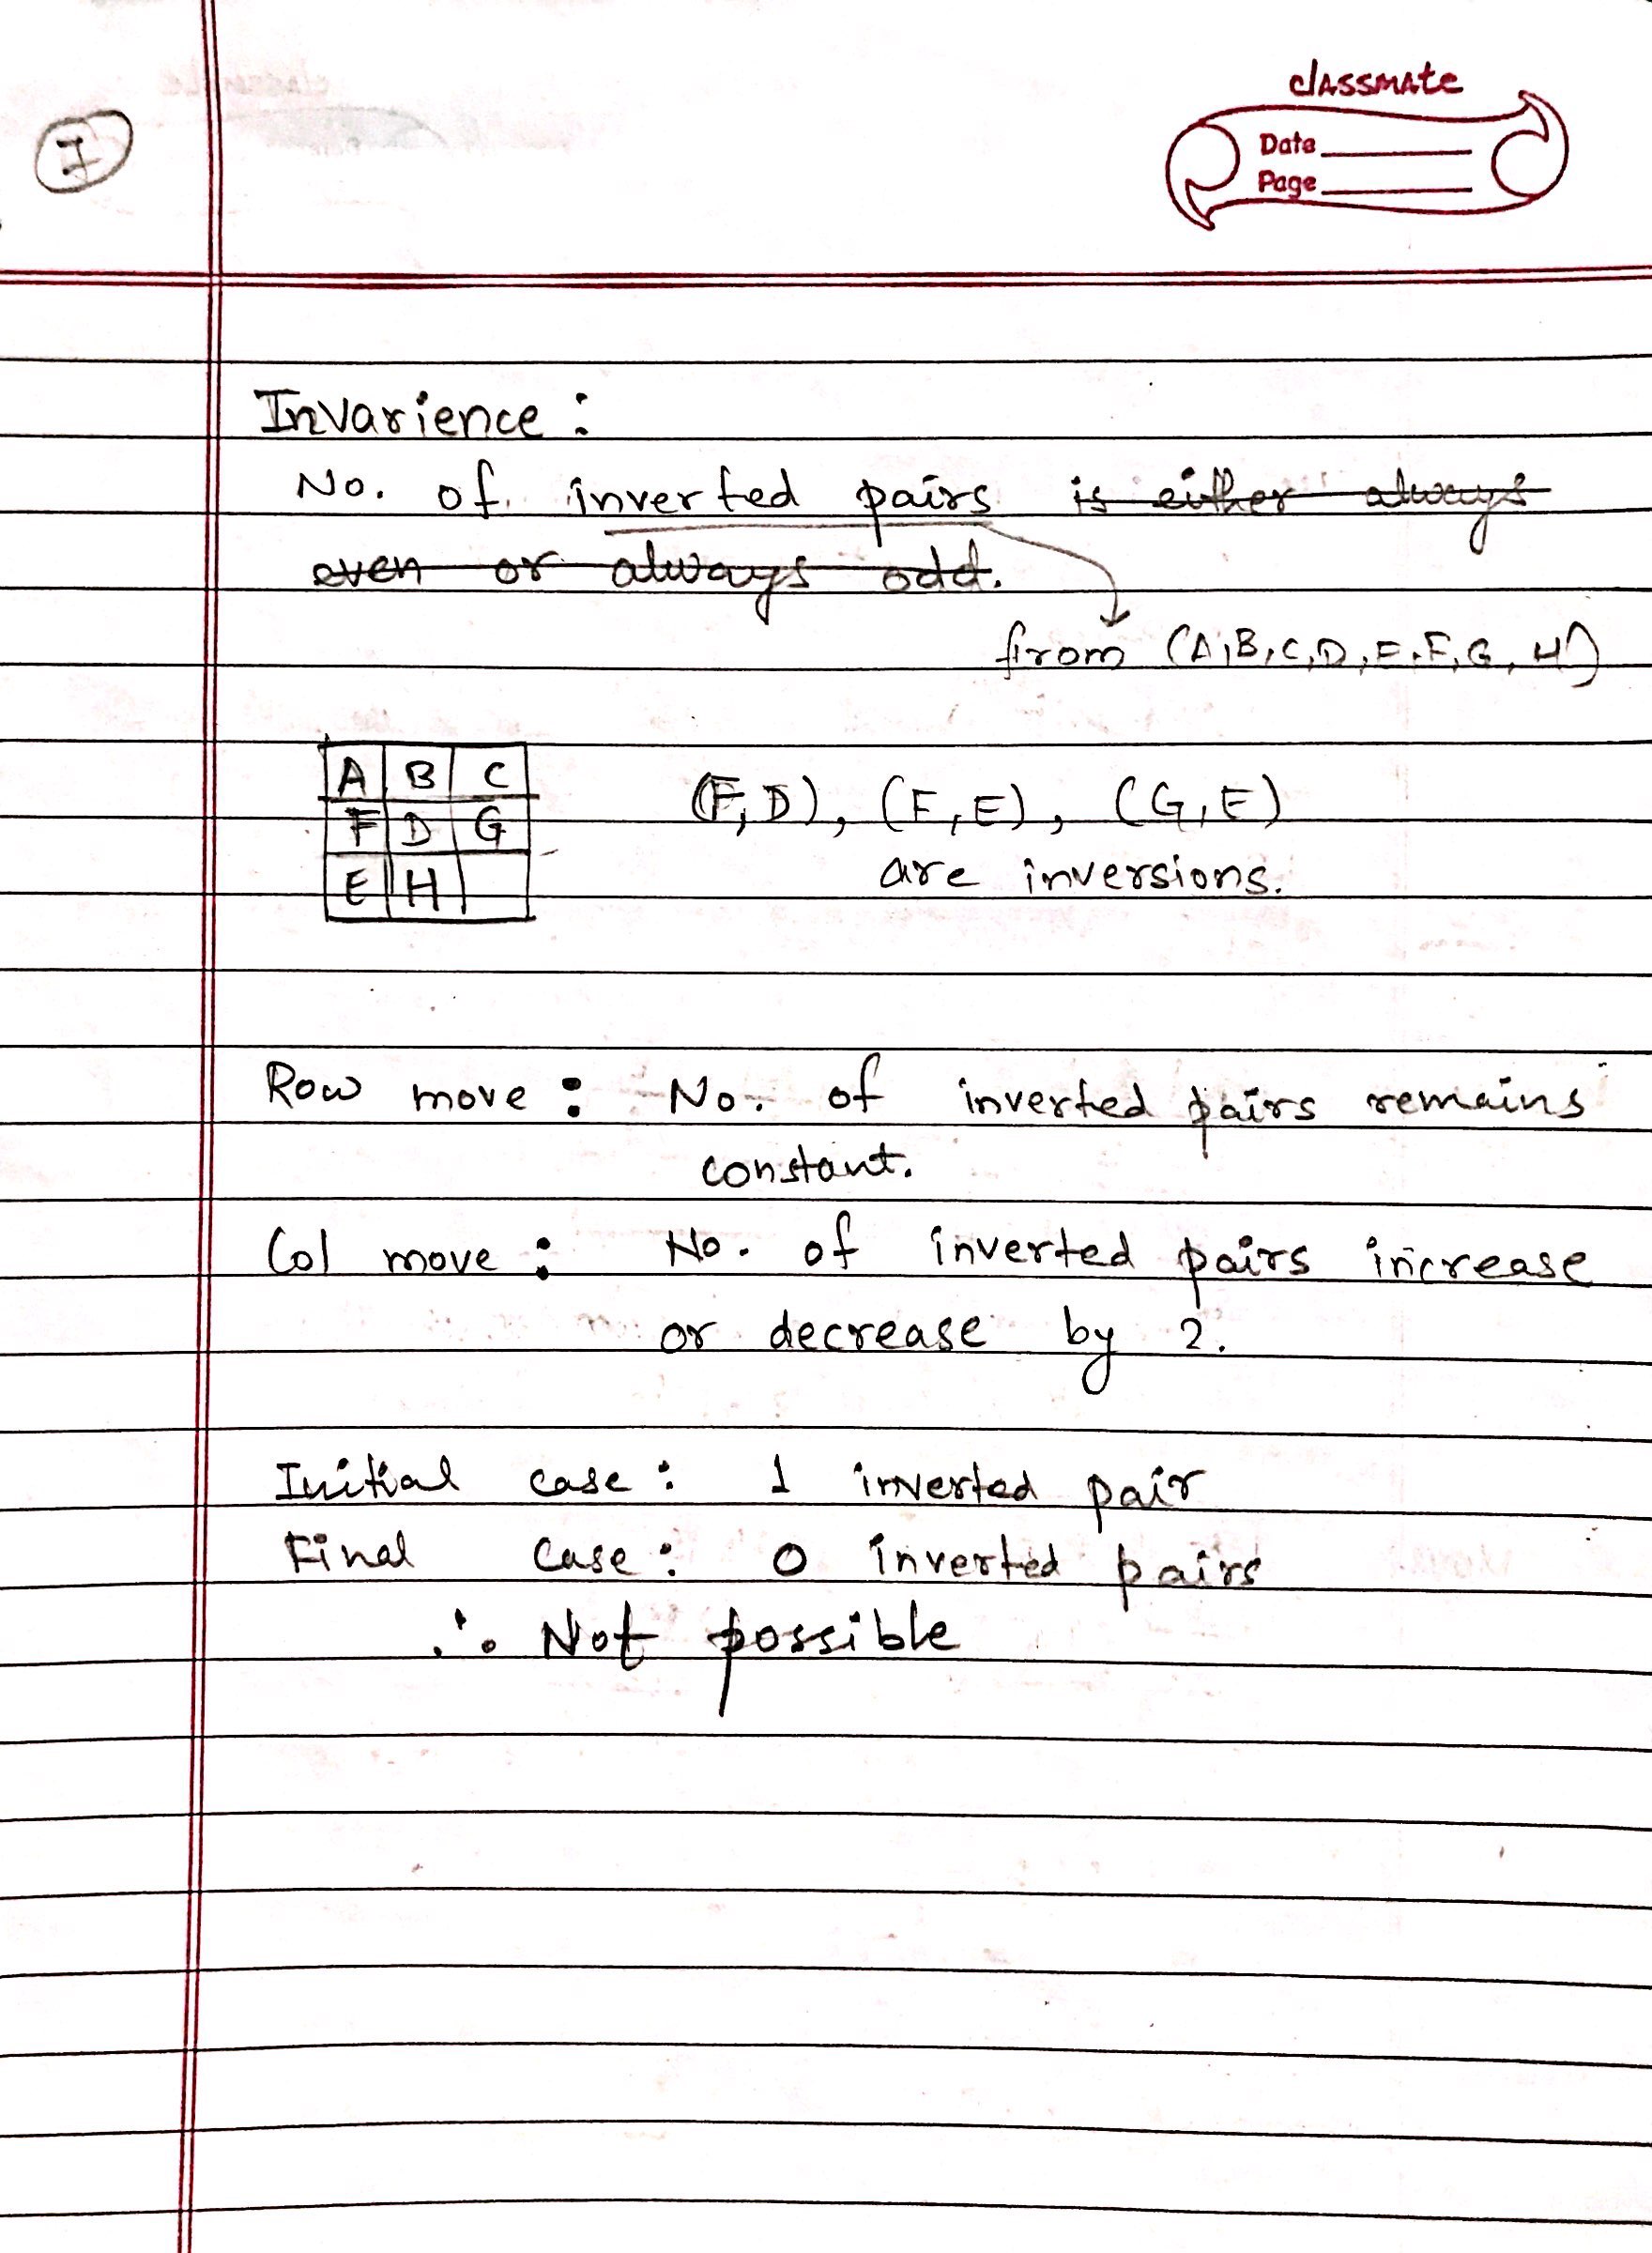 classmate
Date
Page
7
Invarience :
No. of inverted pairs is either always
even or always odd.
from (A,B,C,D,E,F,G,H)
A B C
F D G
E H
(F,D), (F,E), (G,E)
are inversions.
Row move : No. of inverted pairs remains
constant.
Col move : No. of inverted pairs increase
or decrease by 2.
Initial case : 1 inverted pair
Final case : 0 inverted pairs
∴ Not possible